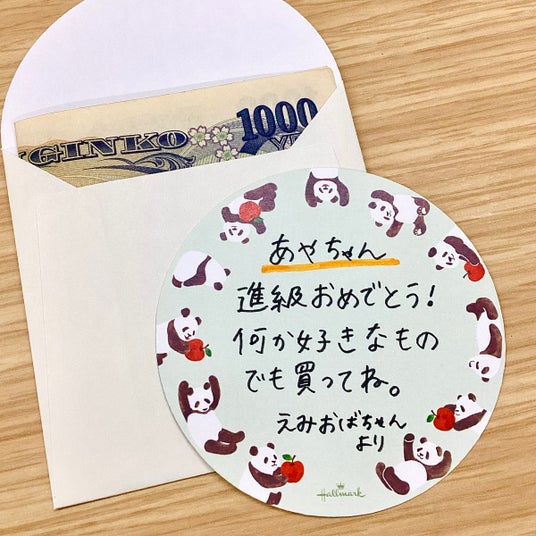 GINKO
1000
あやちゃん
進級おめでとう!
何か好きなもの
でも買ってね。
えみおばちゃん
より
Hallmark